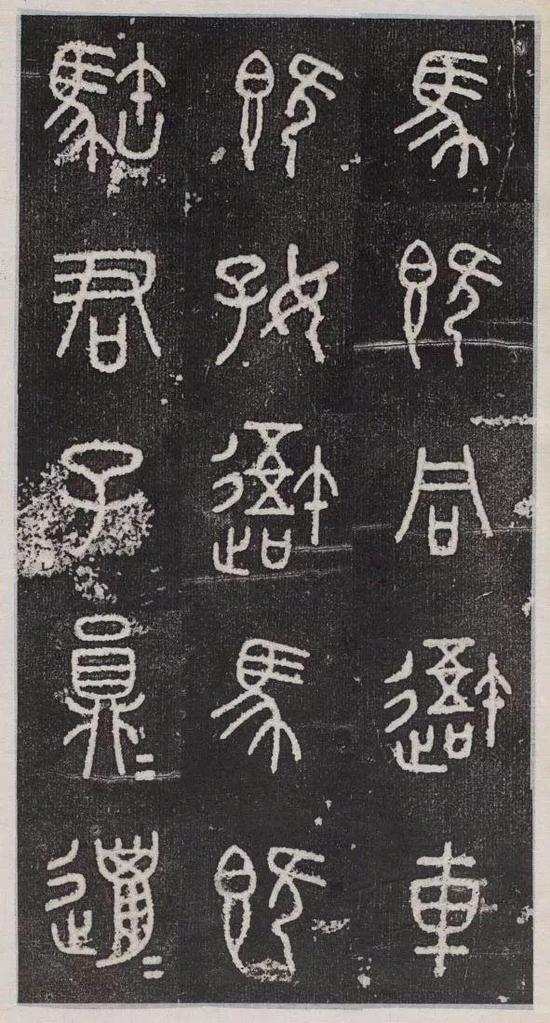 馬既同吾車
既好吾馬既
騊君子員=邋=